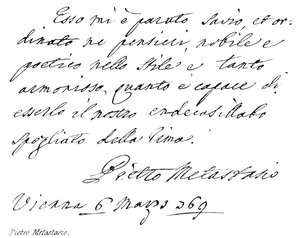 Esso mi è paruto savio, et or-
dinato ne pensieri, nobile e
poetico nello stile e tanto
armonioso, quanto è capace di
esserlo il nostro endecasillabo
spogliato della rima.
Pietro Metastasio
Vienna 6 Marzo 369
Pietro Metastasio.